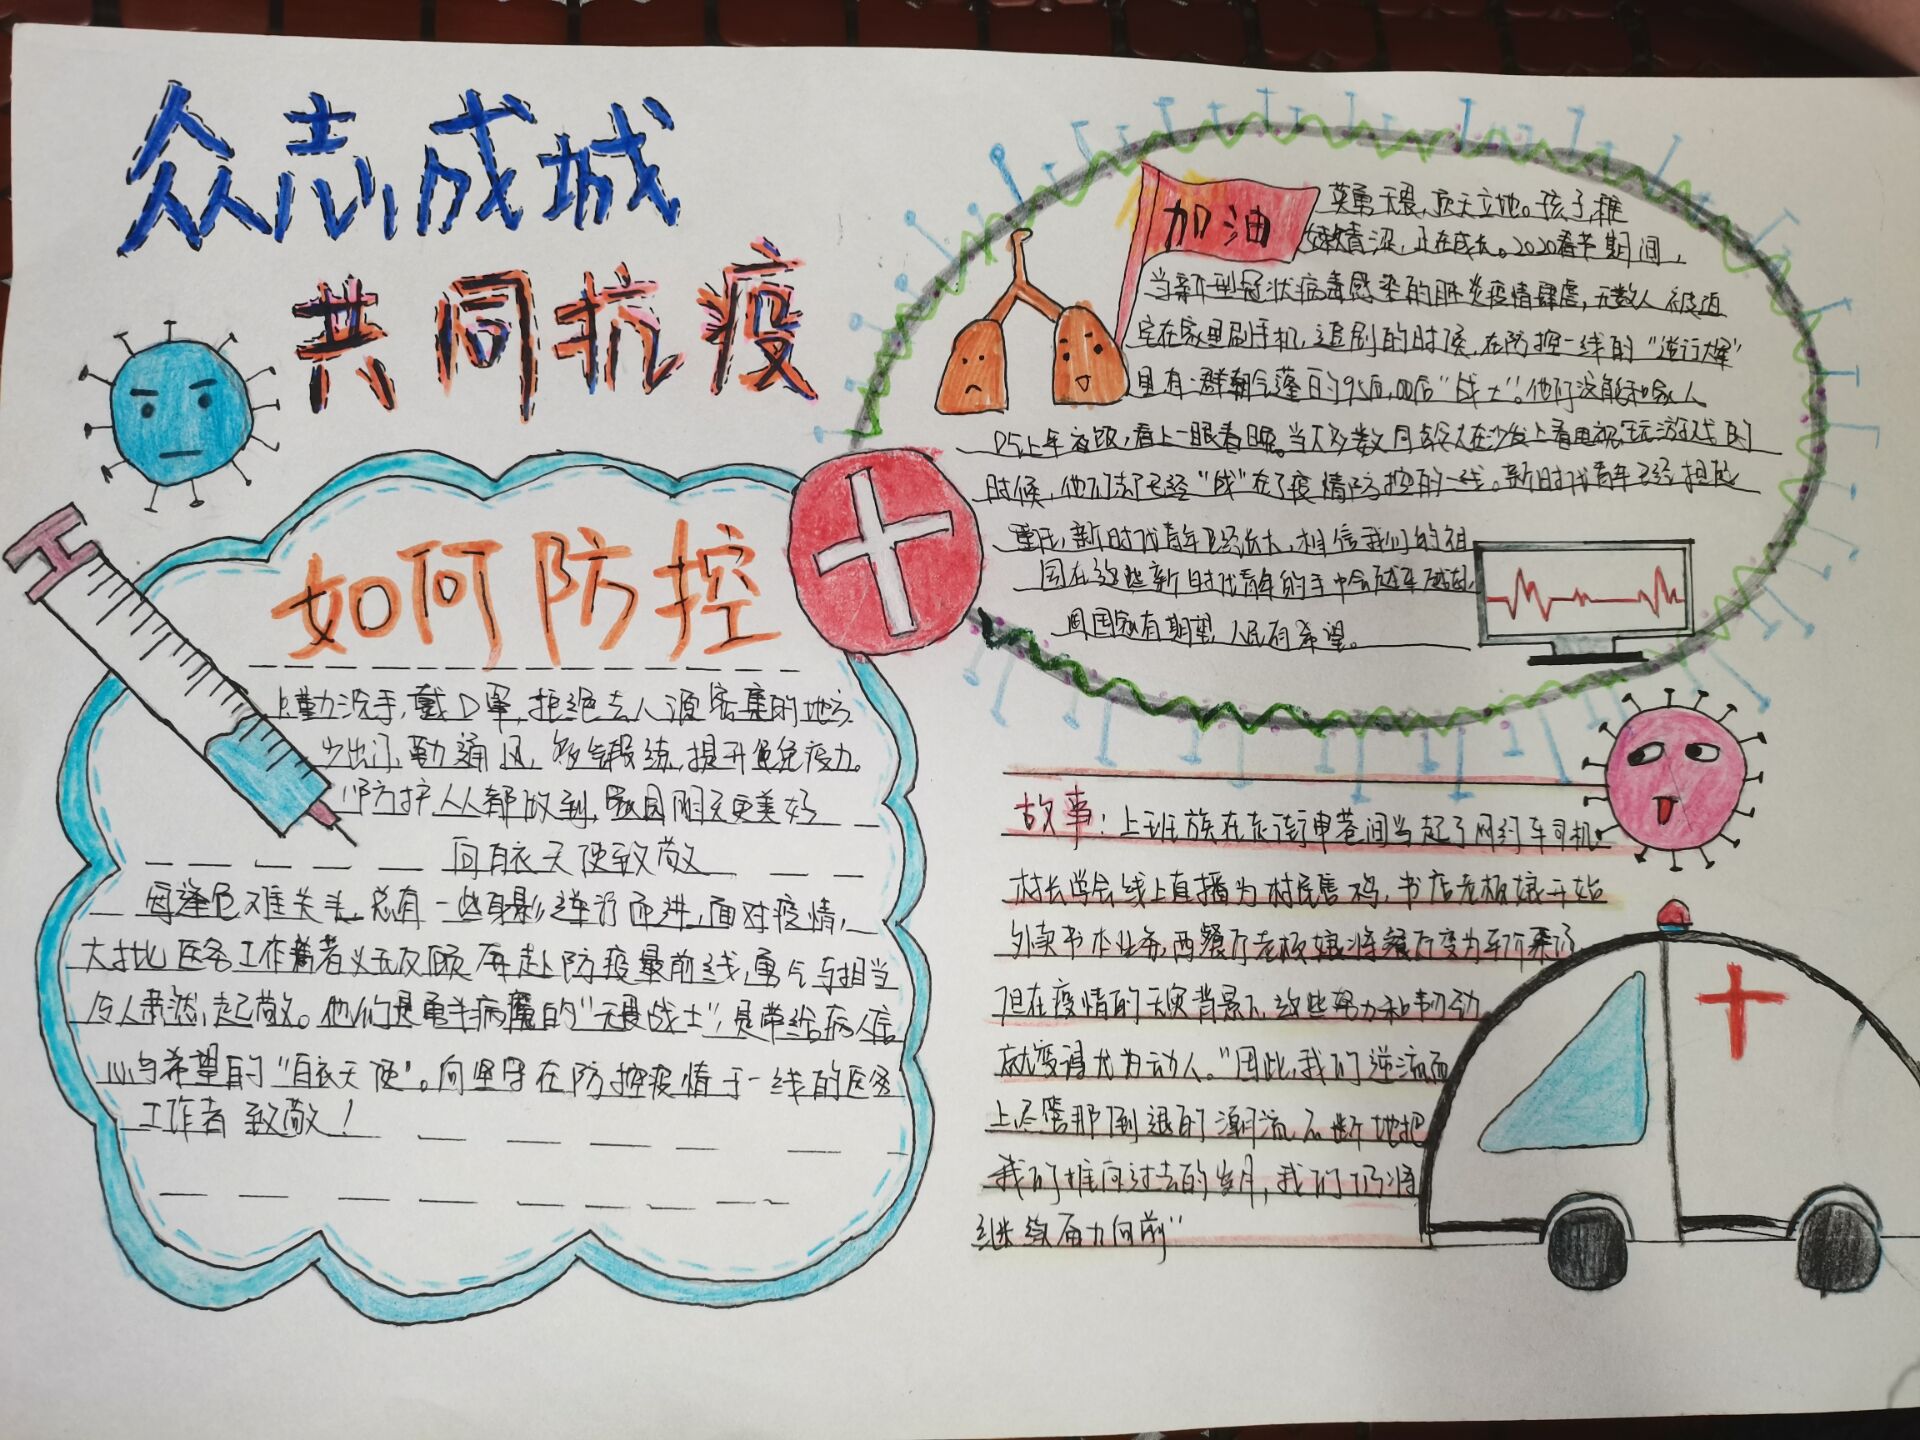 众志成城
共同抗疫
如何防控
上勤洗手,戴口罩,拒绝去人源密集的地方
少出门,勤通风,多多锻练,提升免疫力。
防护人人都做到,家园明天更美好
向白衣天使致敬
每逢危难关头,总有一些身影逆行而进,面对疫情,
大批医务工作者义无反顾奔赴防疫最前线,勇气与担当
令人肃然起敬。他们是勇斗病魔的“无畏战士”,是带给病人信
心与希望的“白衣天使”。向坚守在防控疫情于一线的医务
工作者致敬!
加油
英勇无畏,顶天立地。孩子,稚
嫩青涩,正在成长。2020春节期间,
当新型冠状病毒感染的肺炎疫情肆虐,无数人被迫
宅在家里刷手机,追剧的时候,在防控一线的“逆行大军”
里有一群朝气蓬勃的95后,00后“战士”。他们没能和家人
吃上年夜饭,看上一眼春晚。当大多数同龄人在沙发上看电视玩游戏的
时候,他们却已经“战”在了疫情防控的一线。新时代青年已经担起
重任,新时代青年已经长大,相信我们的祖
国在这些新时代青年的手中会越来越好,
国家有期望,人民有希望。
故事:上班族在走街串巷间当起了网约车司机,
村长学会线上直播为村民售鸡,书店老板娘开始
外卖书本业务,西餐厅老板娘将餐厅变为
但在疫情的灾背景下,这些努力和韧动
就变得尤为动人。“因此,我们逆流而
上,尽管那倒退的潮流不断地把
我们推向过去的岁月,我们仍将
继续奋力向前”